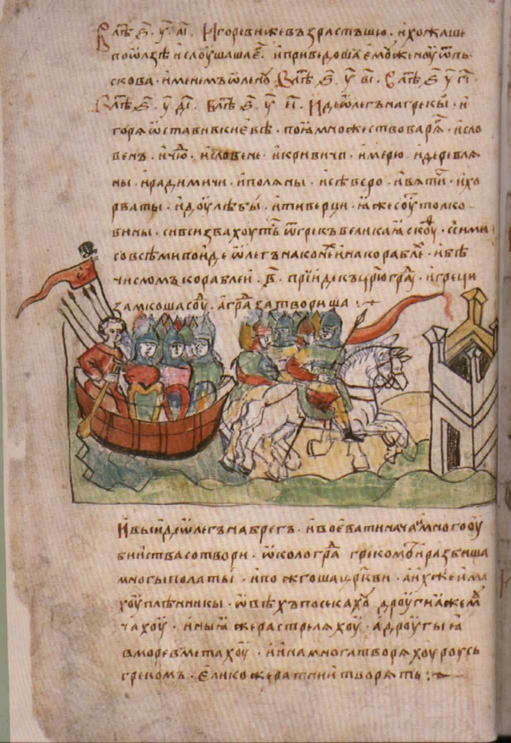 В лѣⷮ ҂ѕ҃ у҃ аі҃ · Игоревиже възрастъшю · и хожаше
по ѡлзѣ и слоушаша еⷢ҇ · и приведоша емоу женоу ѿ пь-
скова · именемъ ѡленоу В лѣⷮ ҂ѕ҃ у҃ ві҃ · В лѣⷮ ҂ѕ҃ у҃ гі҃ ·
В лѣⷮ ҂ѕ҃ у҃ ді҃ · В лѣⷮ ҂ѕ҃ у҃ еі҃ · Иде ѡлегъ на грекы · и
горѧ ѡставив киевѣ · поꙗ множество варѧⷢ · и сло
венъ · и чюⷣ · и словене · и кривичи · и мерю · и деревлѧ
ны · и радимичи · и полѧны · и сѣверо · и вѧтиⷱ · и хо
рваты · и доулѣбы · и тиверци · ꙗже соуⷮ толко
вины · си вси звахоутьⷭ ѿ грекъ великаꙗ скоуⷴ · с сими
со всѣми поиде ѡлегъ на конеⷯ и на кораблеⷯ · и бѣ
числомъ кораблеи · в҃ · приⷣде къ цр҃юграⷣ · и греци
замкоша соуⷣ · а граⷣ затвориша :·
И выиде ѡлегъ на брегъ · и воевати нача · и много оу
бииства сотвори · ѡколо граⷣ грекомъ · и разбиша
многы полаты · и пожгоша цр҃кви · а ихже има
хоу плѣнникы · ѡвѣхъ посекахоу дроугиꙗ же моⷱ
чахоу · иныꙗ же растрелѧхоу · а дроугыꙗ
в море вметахоу · и ина многа творѧхоу роусь
грекомъ · елико же ратнии творѧть :·